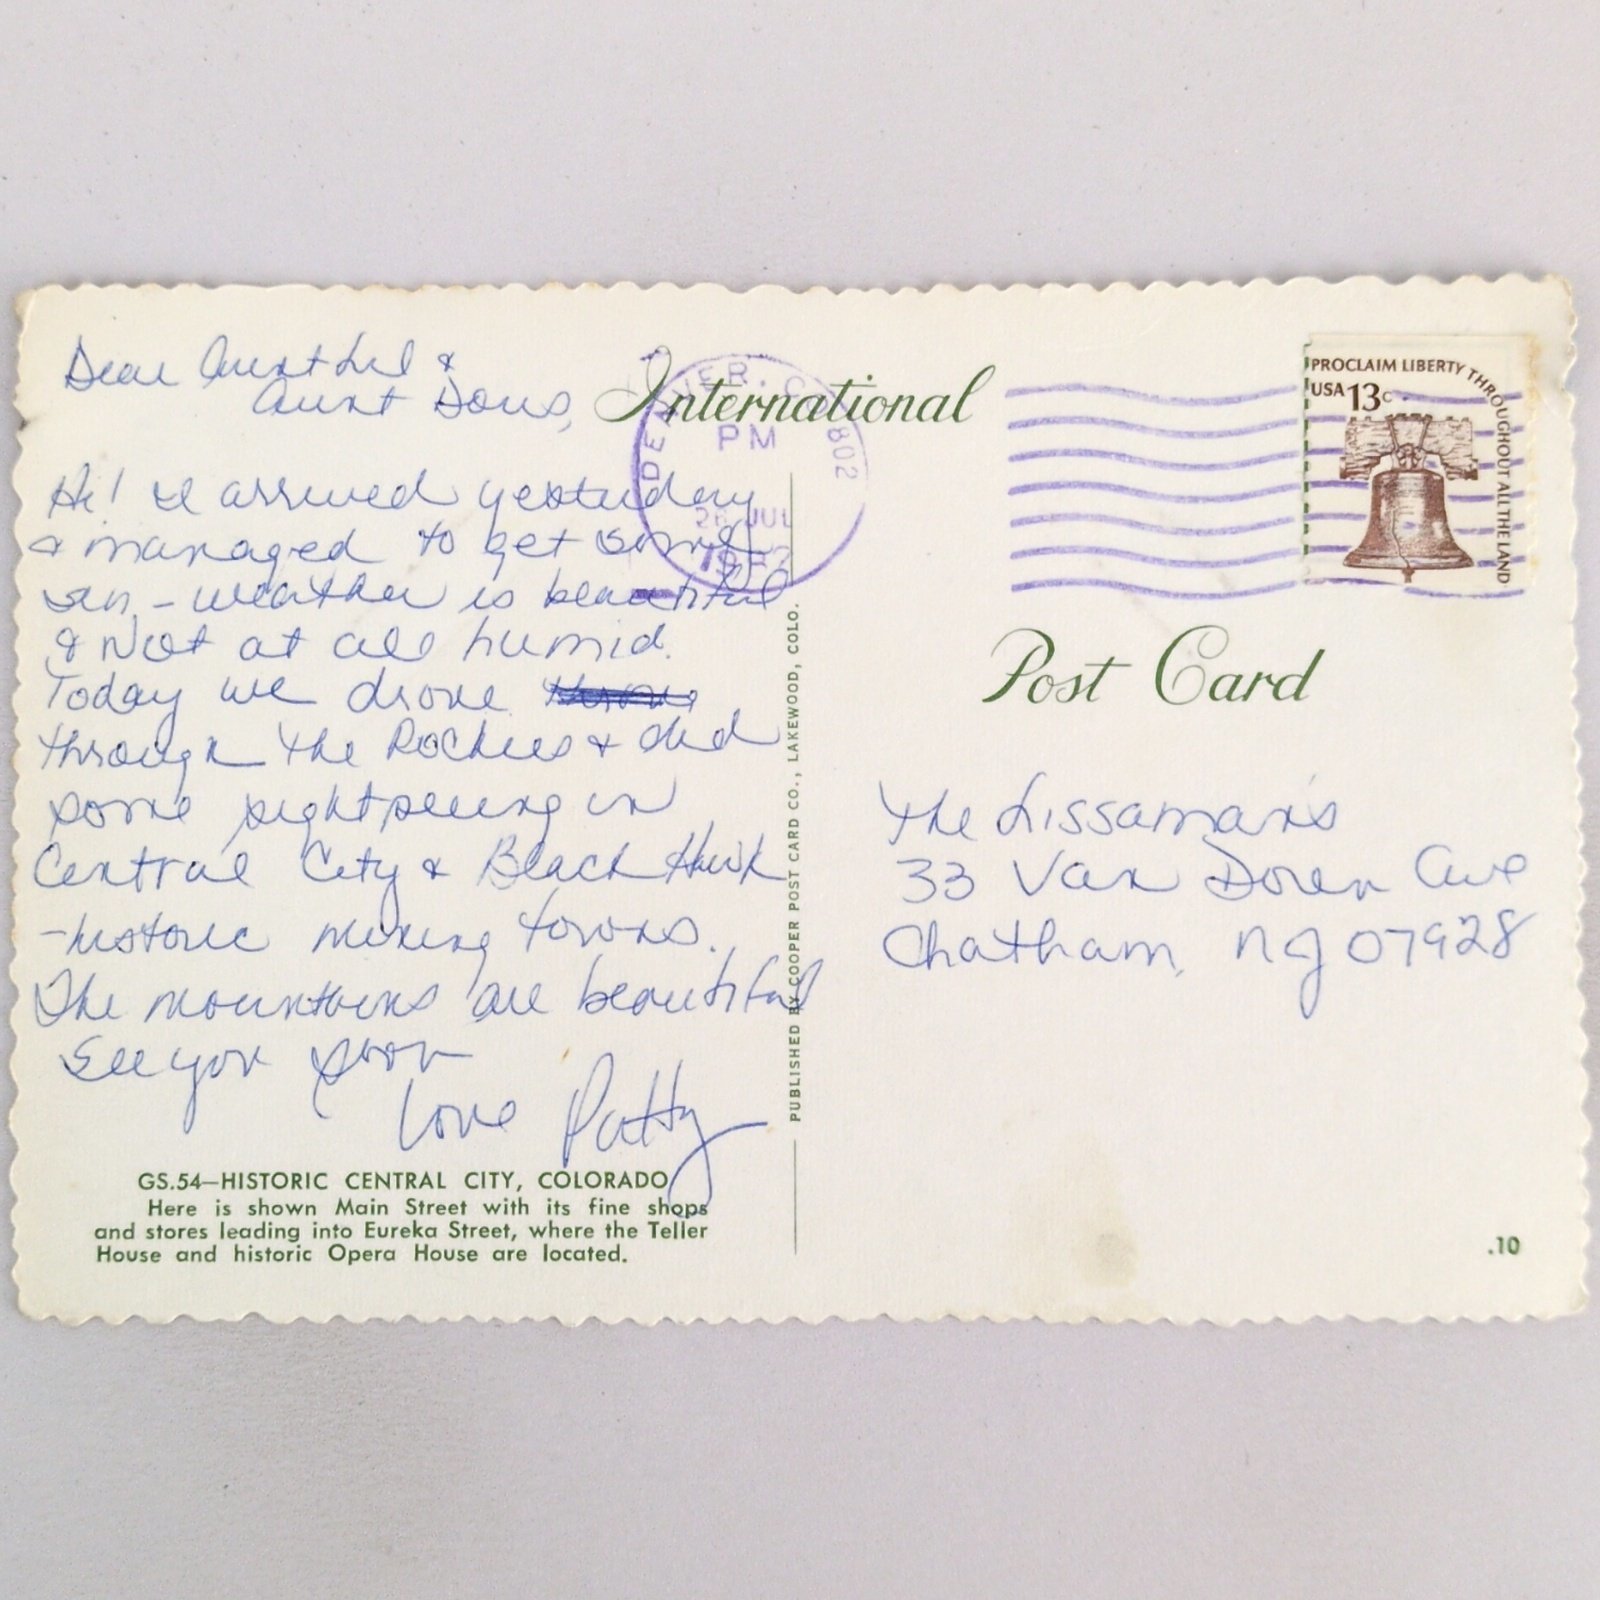 Dear Aunt Lil &
Aunt Doris,
Hi! I arrived yesterday
& managed to get some
sun - weather is beautiful
& Not at all humid.
Today we drove
through the Rockies & did
some sightseeing in
Central City & Black Hawk
- historic mining towns.
The mountains are beautiful
See you soon
Love Patty
GS.54—HISTORIC CENTRAL CITY, COLORADO
Here is shown Main Street with its fine shops
and stores leading into Eureka Street, where the Teller
House and historic Opera House are located.
PUBLISHED BY COOPER POST CARD CO., LAKEWOOD, COLO.
International
DENVER, CO 802
PM
JUL
PROCLAIM LIBERTY THROUGHOUT ALL THE LAND
USA 13c
Post Card
The Lissaman's
33 Van Doren Ave
Chatham, NJ 07928
.10